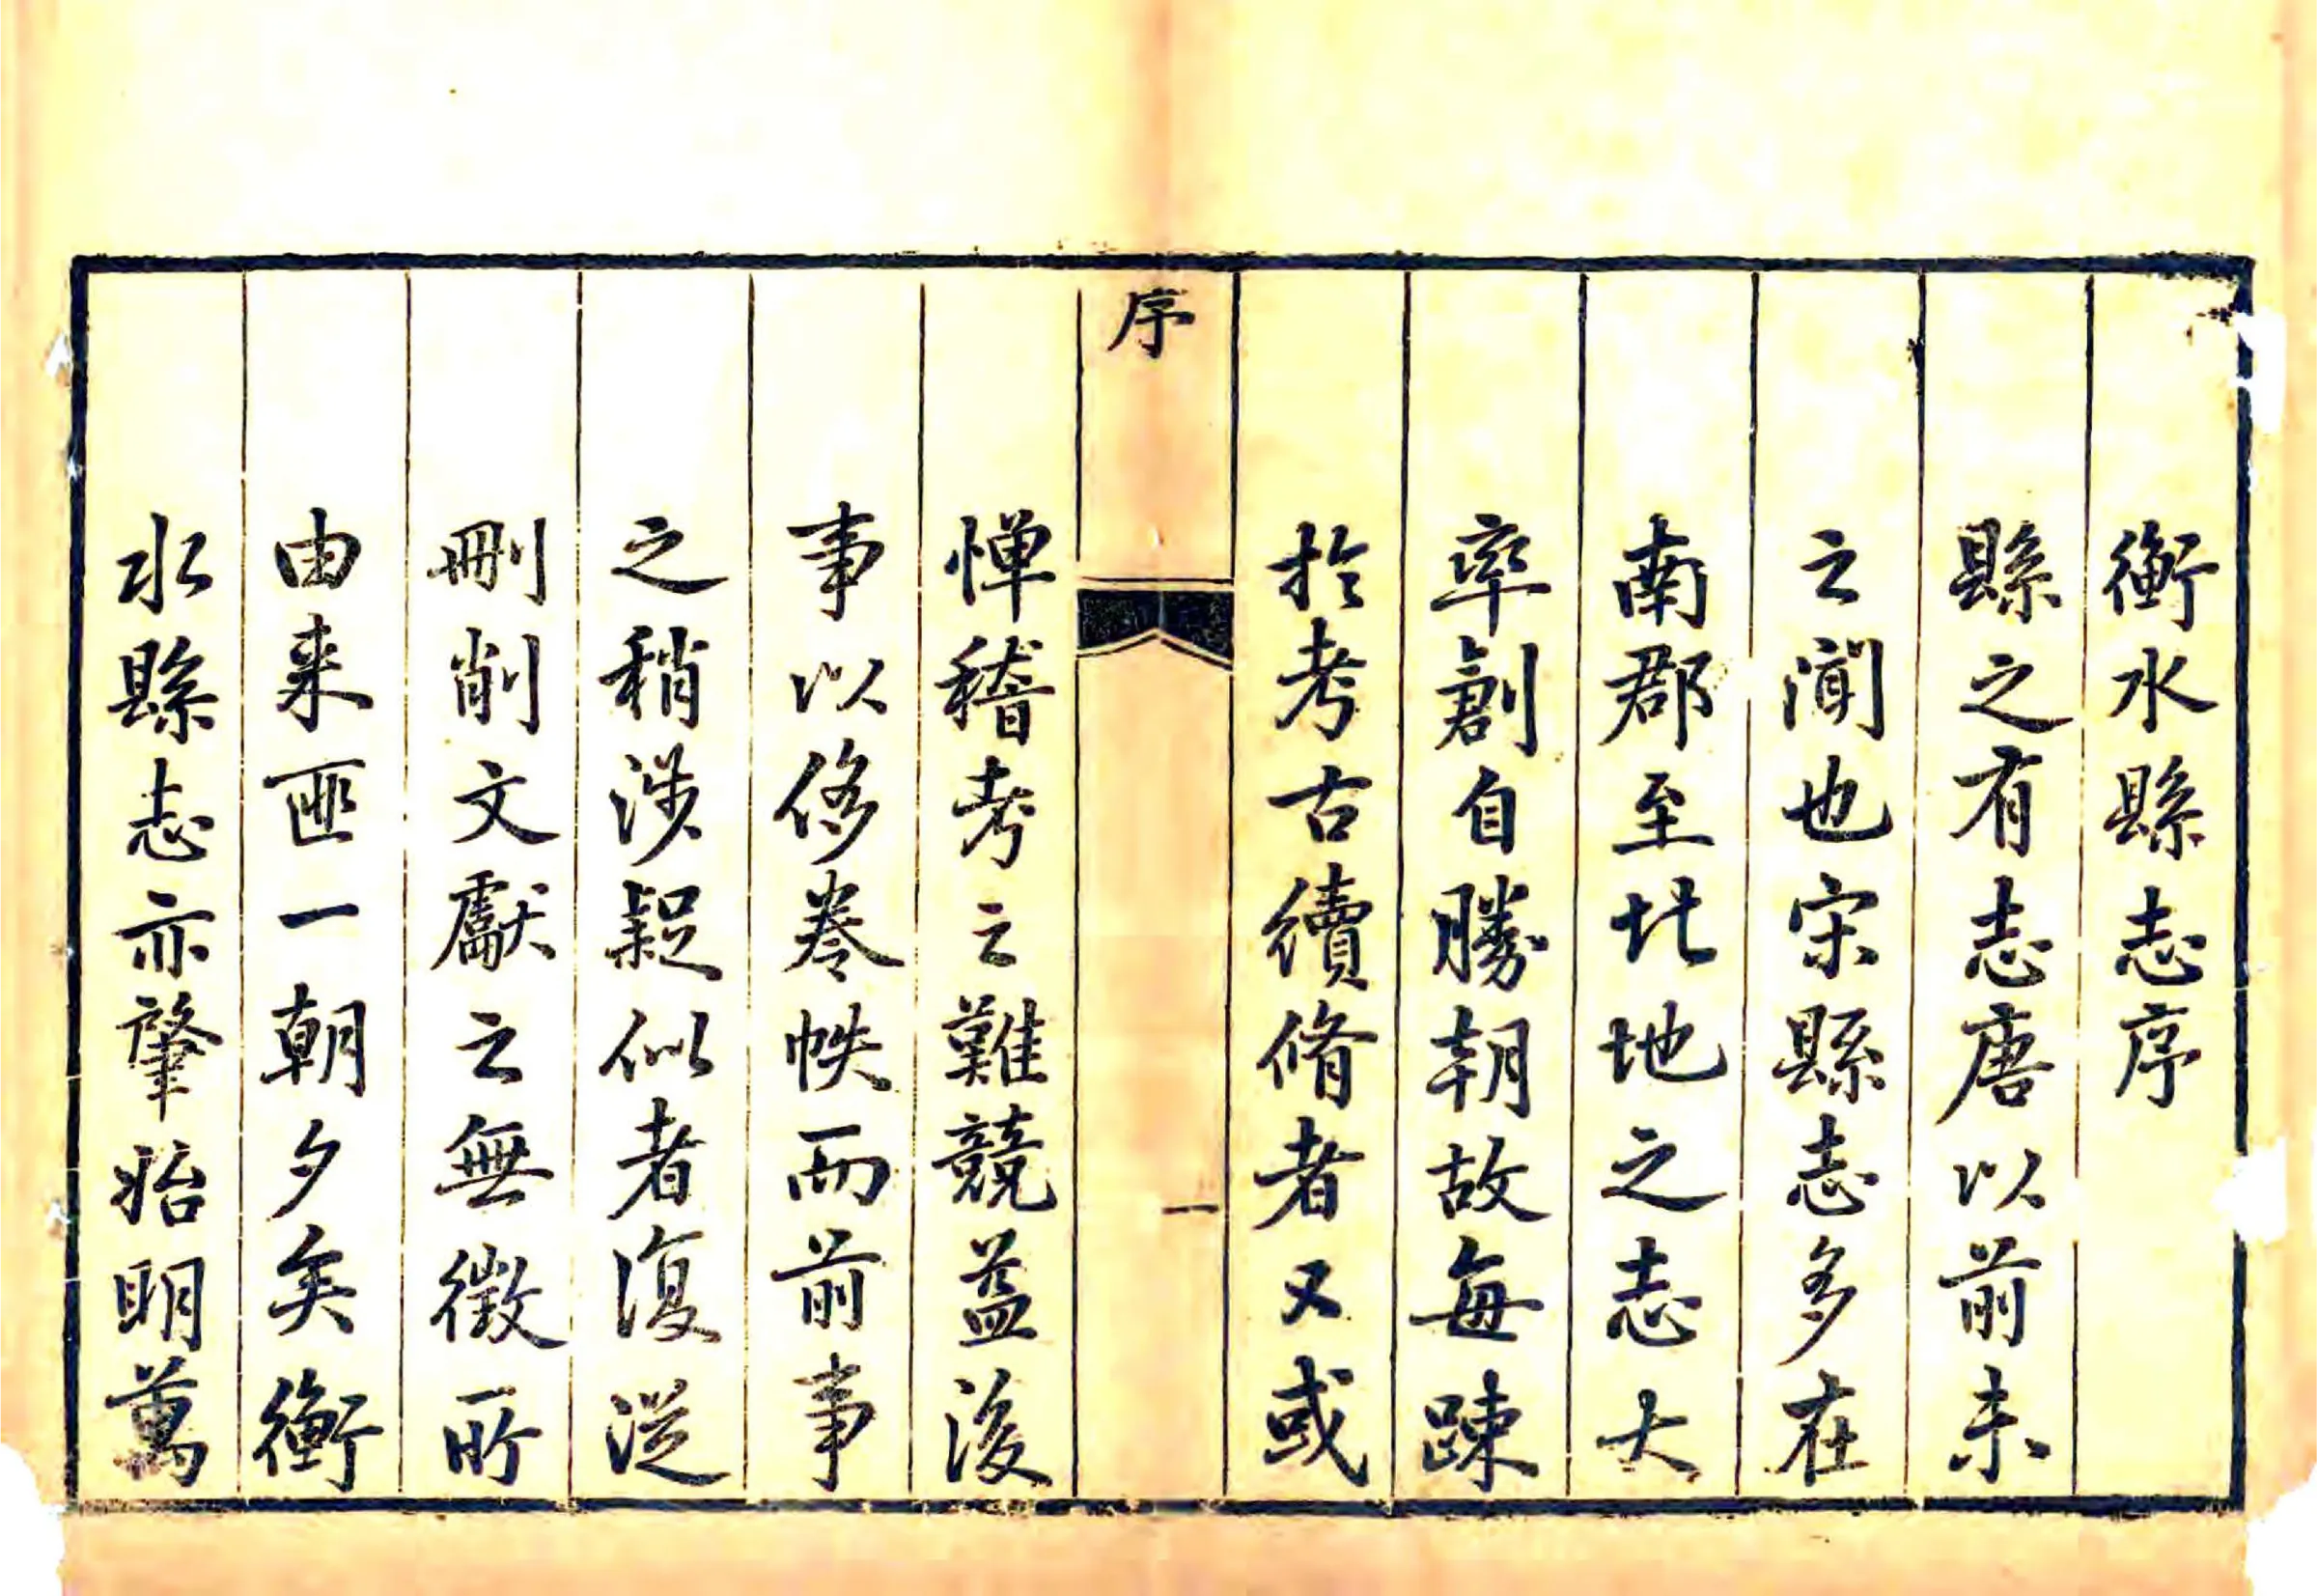 衡水縣志序
縣之有志唐以前未
之聞也宋縣志多在
南郡至北地之志大
率創自勝朝故每踈
於考古續脩者又或
序
一
憚稽考之難競益後
事以侈卷帙而前事
之稍涉疑似者復從
刪削文獻之無徵所
由来匪一朝夕矣衡
水縣志亦肇始明萬